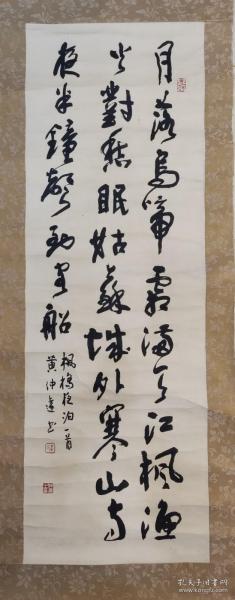 月落烏啼霜滿天江楓漁
火對愁眠姑蘇城外寒山寺
夜半鐘聲到客船
楓橋夜泊一首
黄仲達书
孔夫子旧书网